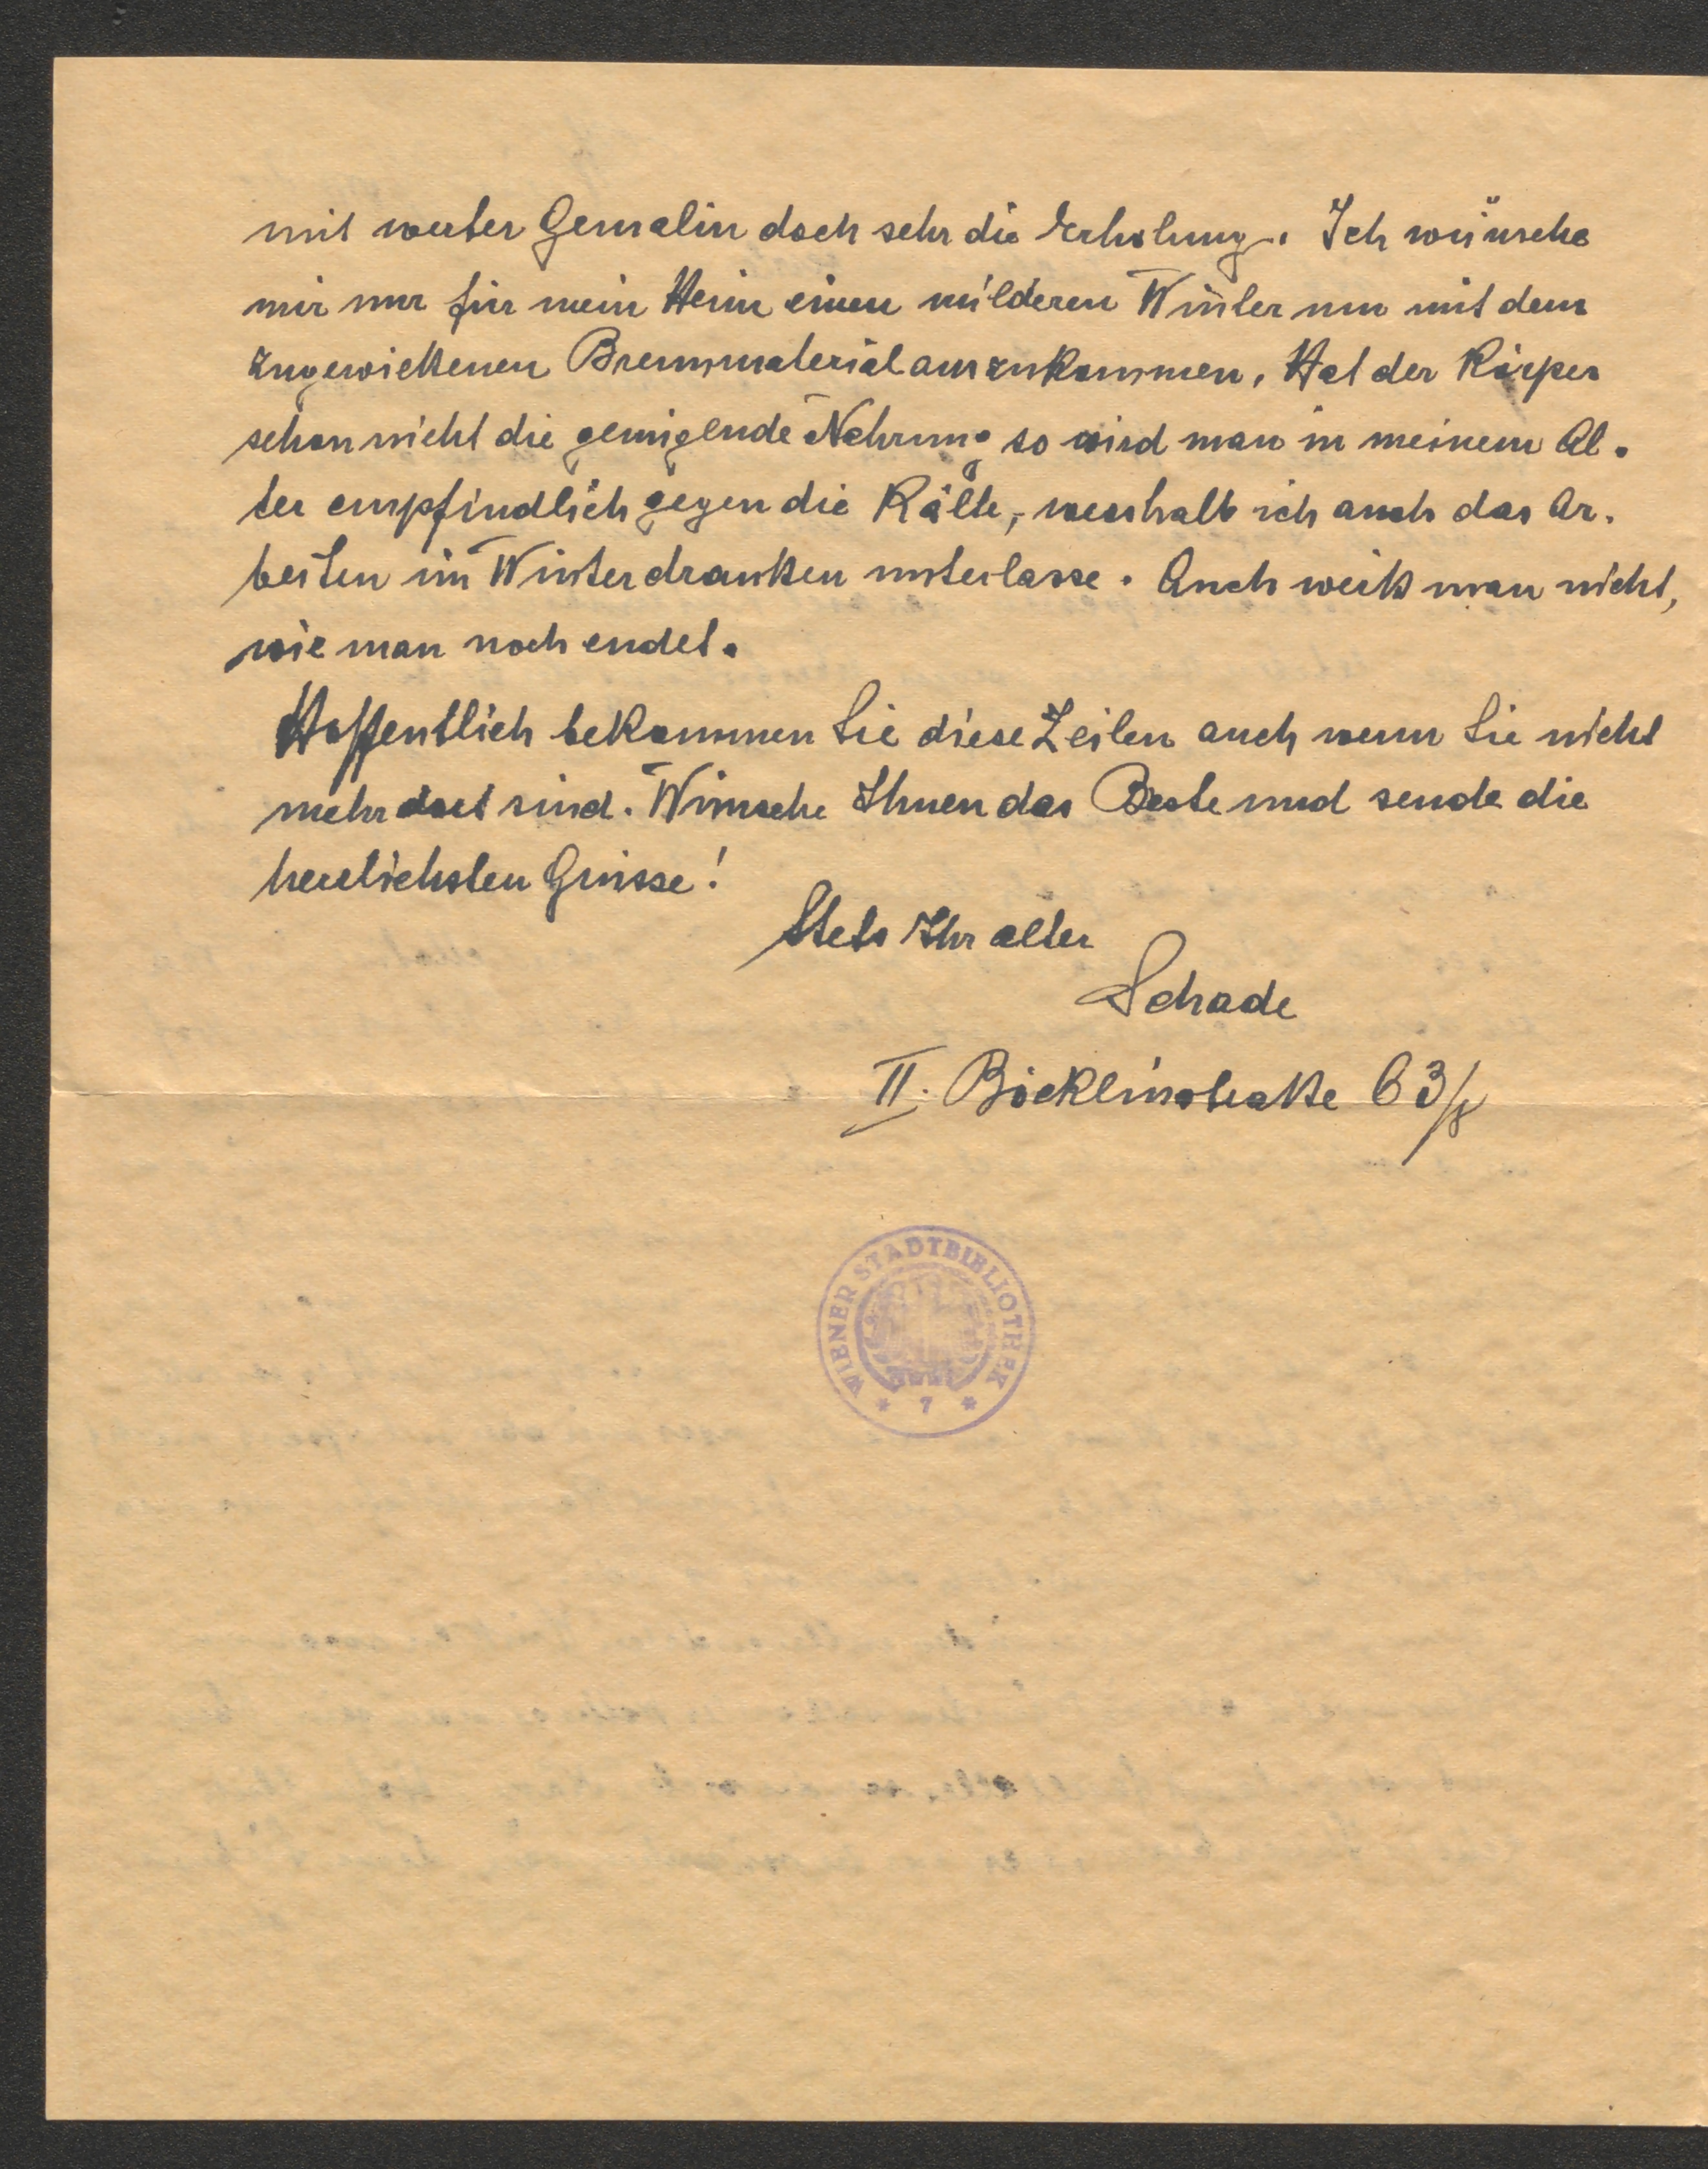 mit werter Gemalin doch sehr die Erholung. Ich wünsche
mir nur für mein Heim einen milderen Winter um mit dem
zugewießenen Brennmaterial auszukommen. Hat der Körper
schon nicht die genügende Nahrung so wird man in meinem Al-
ter empfindlich gegen die Kälte, weshalb ich auch das Ar-
beiten im Winter draußen unterlasse. Auch weiß man nicht,
wie man noch endet.
Hoffentlich bekommen Sie diese Zeilen auch wenn Sie nicht
mehr dort sind. Wünsche Ihnen das Beste und sende die
herzlichsten Grüsse!
Stets Ihr alter
Schade
II. Böcklinstraße 63/8
WIENER STADTBIBLIOTHEK
* 7 *